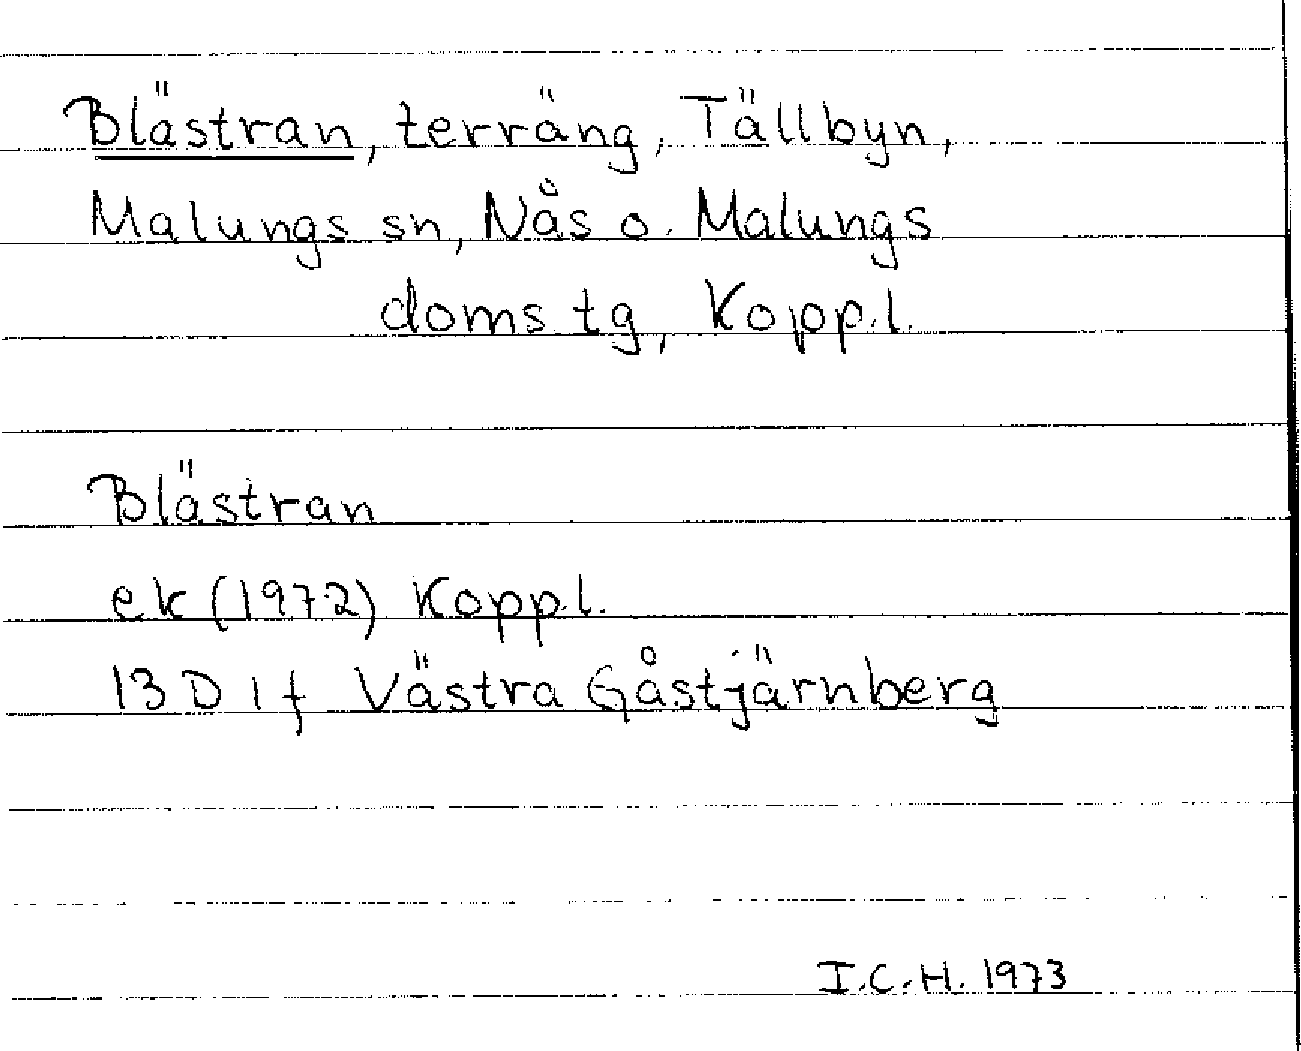 Blästran, terräng, Tällbyn,
Malungs sn, Nås o. Malungs
doms tg, Kopp.l.
Blästran
ek (1972) Kopp.l.
13 D 1 f Västra Gåstjärnberg
I.C.H. 1973